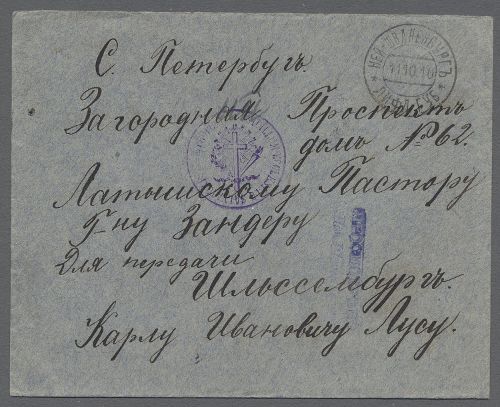 С. Петербугъ.
Загородный Проспектъ
домъ № 62.
Латышскому Пастору
Г-ну Зандеру
Для передачи
Шлюссембургъ.
Карлу Ивановичу Лусу.
НЕЙ-ШВАНЕНБУРГЪ
11.10.10
ЛИФЛ.